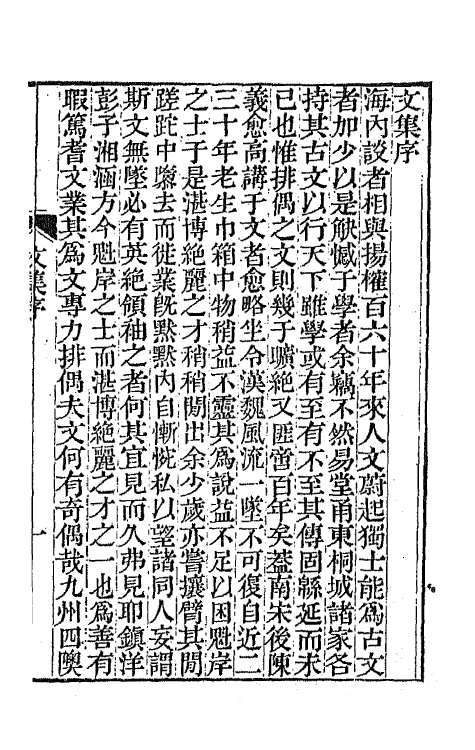 文集序
海內談者相與揚榷百六十年來人文蔚起獨士能爲古文
者加少以是觖憾于學者余竊不然易堂甬東桐城諸家各
持其古文以行天下雖學或有至有不至其傳固緜延而未
已也惟排偶之文則幾于曠絶又匪啻百年矣葢南宋後陳
義愈高講于文者愈略坐令漢魏風流一墜不可復自近二
三十年老生巾箱中物稍益不靈其爲說益不足以困魁岸
之士于是湛博絶麗之才稍稍閒出余少歲亦嘗攘臂其閒
蹉跎中隳去而徙業旣默默內自慚恧私以望諸同人妄謂
斯文無墜必有英絶領袖之者何其宜見而久弗見耶鎭洋
彭子湘涵方今魁岸之士而湛博絶麗之才之一也爲善有
暇篤耆文業其爲文專力排偶夫文何有奇偶哉九州四隩
文集序
一